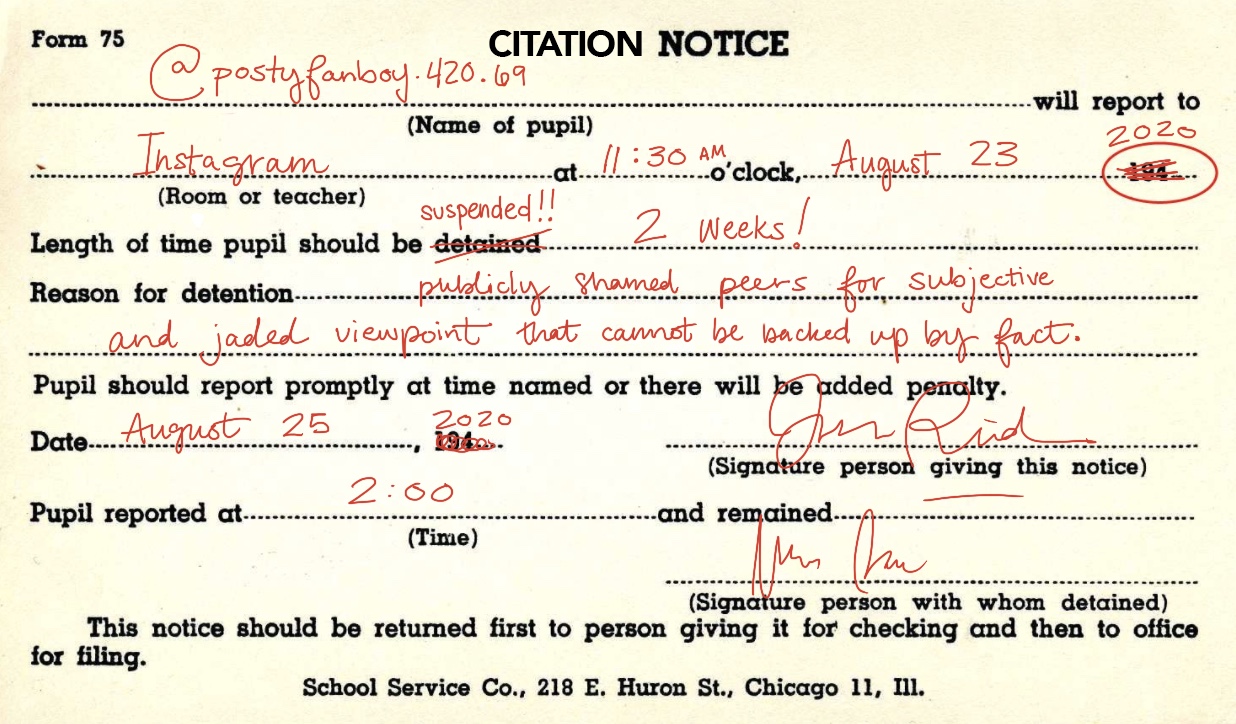 Form 75
CITATION NOTICE
@postyfanboy.420.69
will report to
(Name of pupil)
2020
Instagram at 11:30 AM o'clock, August 23 194
(Room or teacher)
suspended!!
Length of time pupil should be detained 2 weeks!
Reason for detention publicly shamed peers for subjective
and jaded viewpoint that cannot be backed up by fact.
Pupil should report promptly at time named or there will be added penalty.
2020
Date August 25, 194
(Signature person giving this notice)
Pupil reported at 2:00 and remained
(Time)
(Signature person with whom detained)
This notice should be returned first to person giving it for checking and then to office
for filing.
School Service Co., 218 E. Huron St., Chicago 11, Ill.